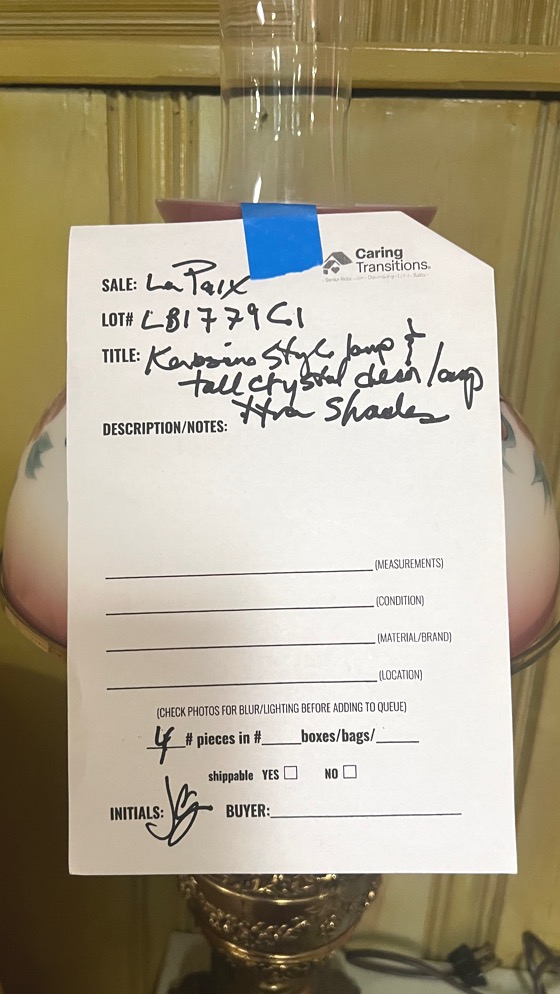 Caring
Transitions®
SALE: La Paix
LOT# LB1779CI
TITLE: Kerosine Style lamp &
tall crystal clear lamp
xtra Shades
DESCRIPTION/NOTES:
(MEASUREMENTS)
(CONDITION)
(MATERIAL/BRAND)
(LOCATION)
(CHECK PHOTOS FOR BLUR/LIGHTING BEFORE ADDING TO QUEUE)
4 # pieces in #_____boxes/bags/_____
shippable YES ☐ NO ☐
INITIALS: BUYER: